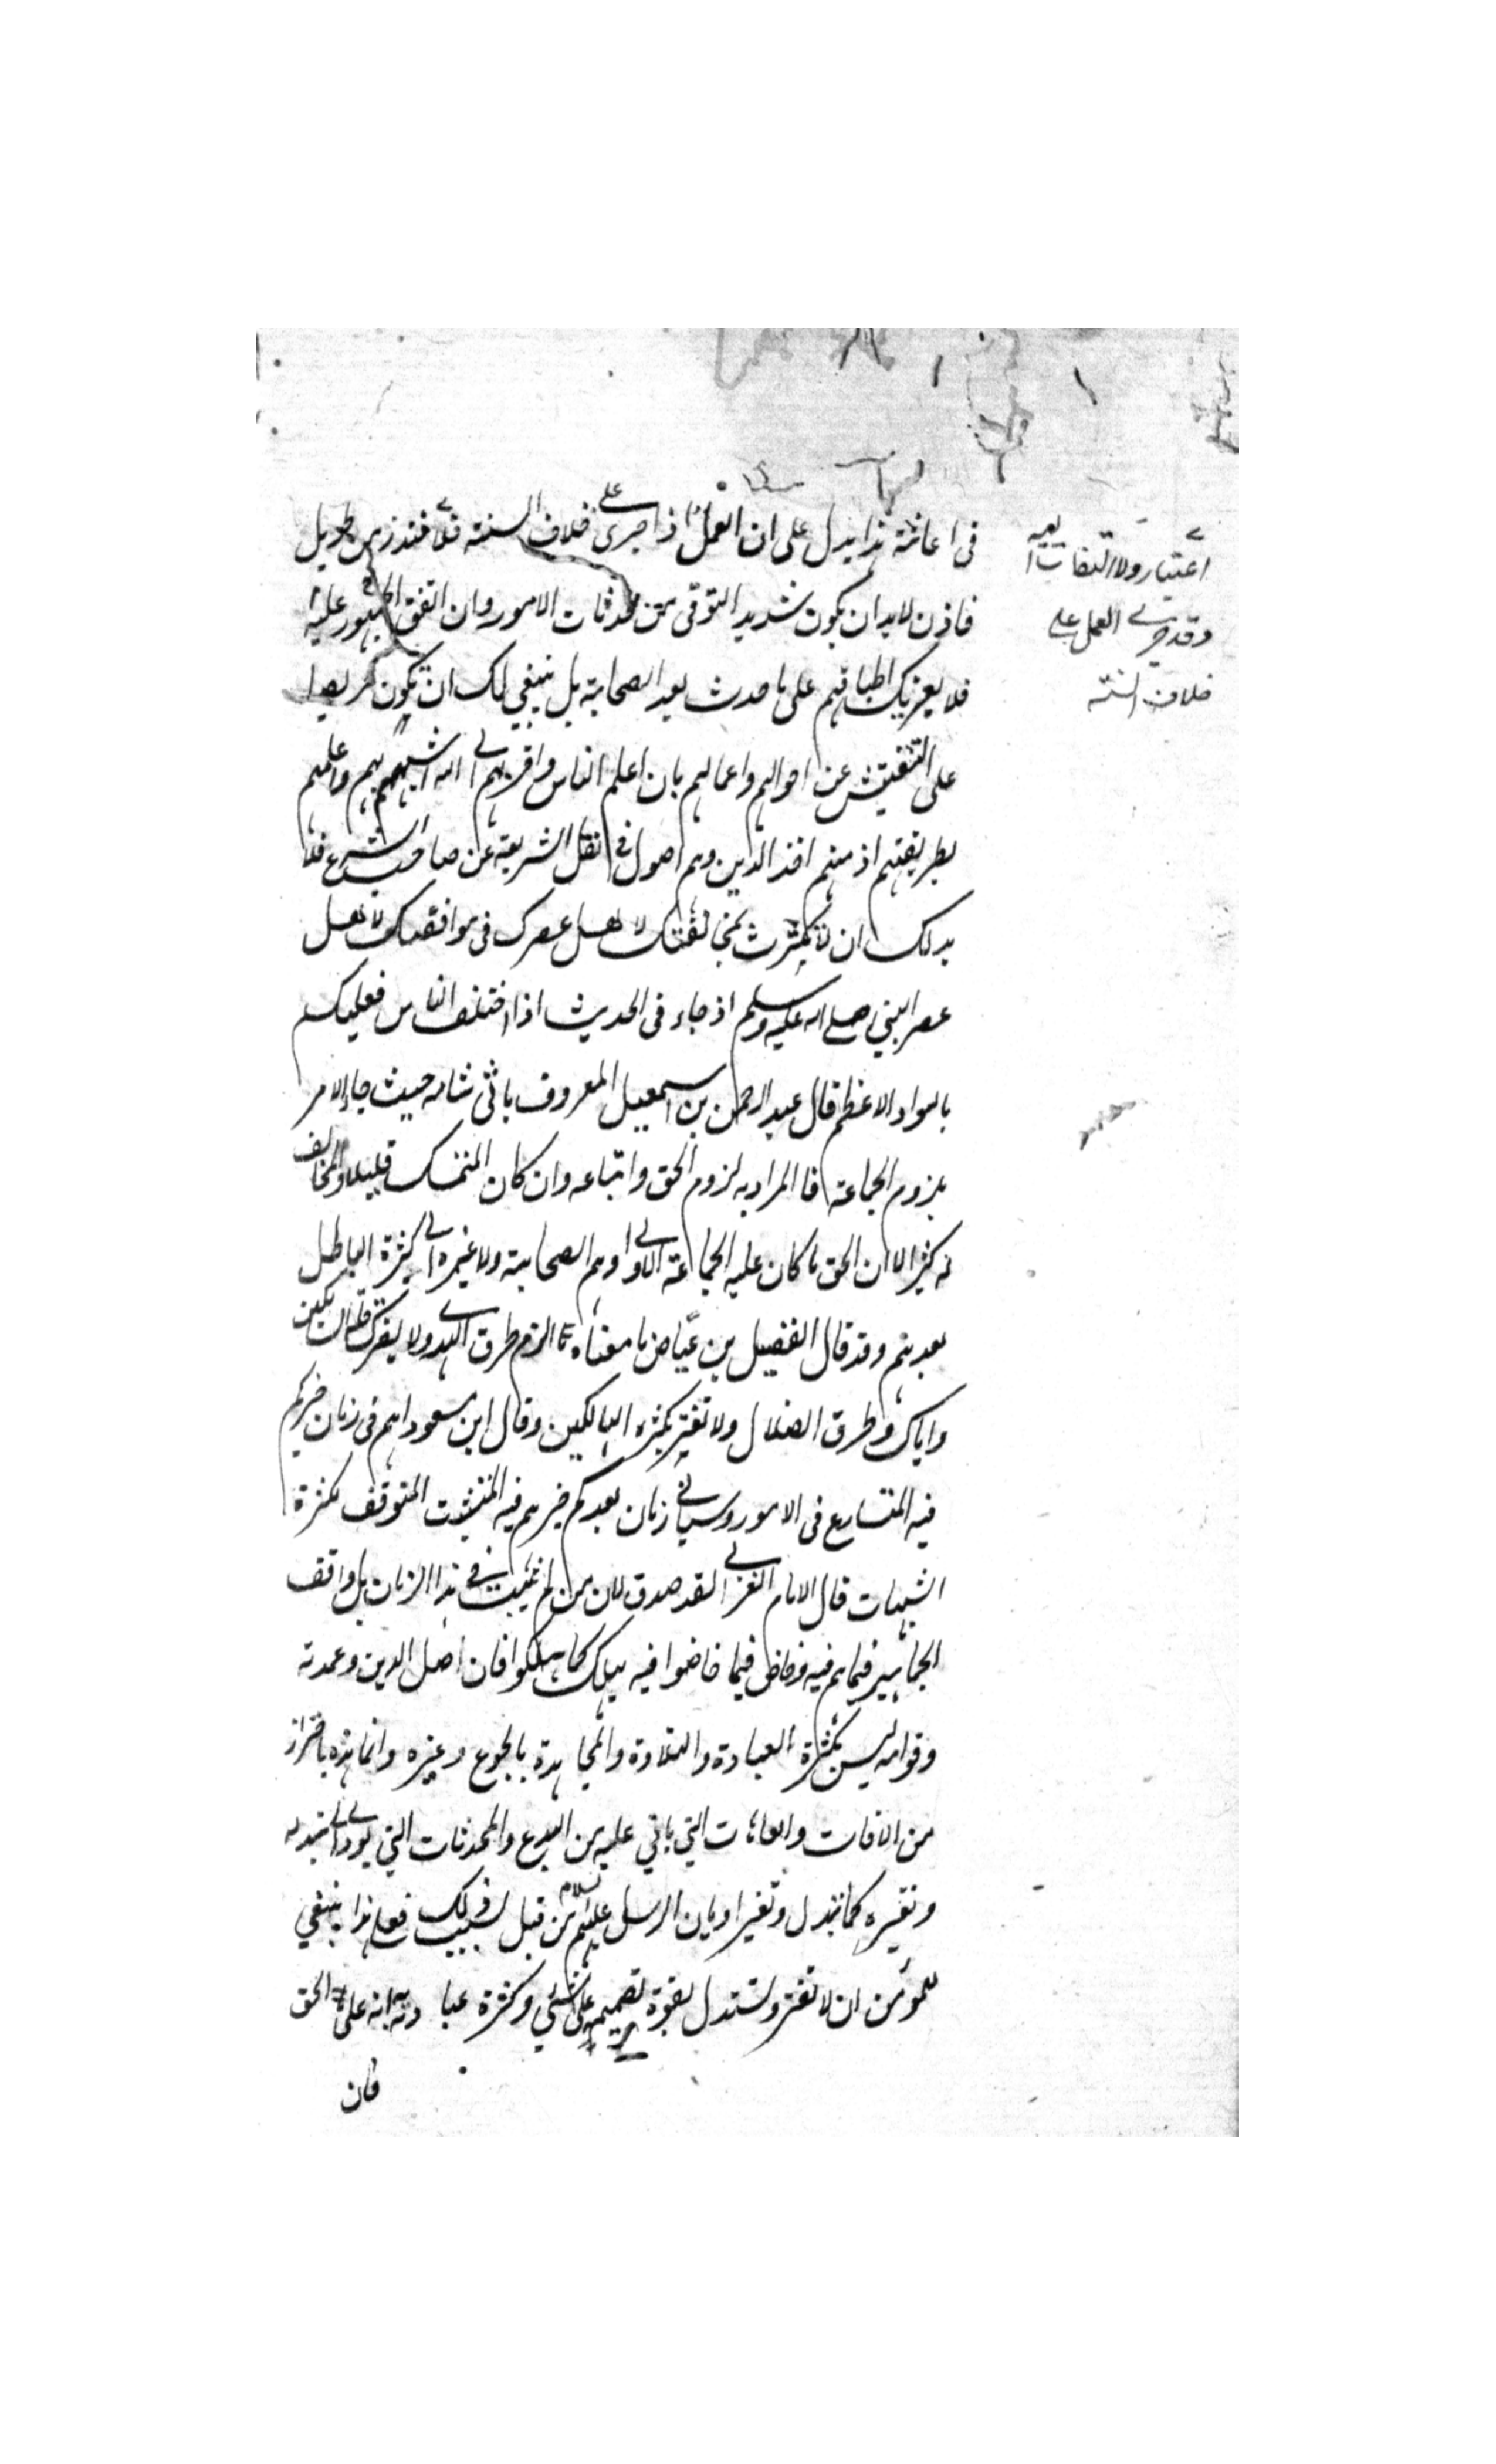 في اعاثة هذا يدل على ان العمل اذا جرى على خلاف السنة فلا منذ زمن طويل
فاذن لابد ان يكون شديد التوقي من محدثات الامور وان اتفق الجمهور عليه
فلا يغرنك اطباقهم على ما حدث بعد الصحابة بل ينبغي لك ان تكون حريصا
على التفتيش عن احوالهم واعمالهم بان اعلم الناس واقربهم الى الله اشبههم بهم واعلمهم
بطريقتهم اذ منهم اخذ الدين وهم اصول في نقل الشريعة عن صاحب الشرع فلا
بد لك ان لا تكترث بمخالفتك لاهل عصرك في موافقتك لاهل
عصر النبي صلى الله عليه وسلم اذ جاء في الحديث اذا اختلف الناس فعليكم
بالسواد الاعظم قال عبد الرحمن بن اسمعيل المعروف بابي شامه حيث جاء الامر
بلزوم الجماعة فالمراد به لزوم الحق واتباعه وان كان المتمسك قليلا والمخالف
له كثيرا لان الحق ما كان عليه الجماعة الاولى وهم الصحابة ولا عبرة الى كثرة الباطل
بعدهم وقد قال الفضيل بن عياض ما معناه الزم طرق الهدى ولا يضرك قلة السالكين
واياك وطرق الضلال ولا تغتر بكثرة الهالكين وقال ابن مسعود انتم في زمان خيركم
فيه المتسارع في الامور وسياتي زمان بعدكم خيرهم فيه المتثبت المتوقف لكثرة
الشبهات قال الامام الغزالي لقد صدق لان من لم يثبت في هذا الزمان بل وافق
الجماهير فيما هم فيه وخاض فيما خاضوا فيه يهلك كما هلكوا فان اصل الدين وعمدته
وقوامه ليس بكثرة العبادة والتلاوة والمجاهدة بالجوع وغيره وانما هذه باحراز
من الافات والعاهات التي ياتي عليه من البدع والمحدثات التي يودي الى تبدله
وتغيره كما تبدل وتغير اديان الرسل عليهم السلام من قبل بسبب ذلك فعلى هذا ينبغي
للمؤمن ان لا تغتر وتستدل بقوة تصميمه على الشئ وكثرة عبادته انه على الحق
فان
اعتبار ولا التفات اليه
وقد جرى العمل على
خلاف السنة